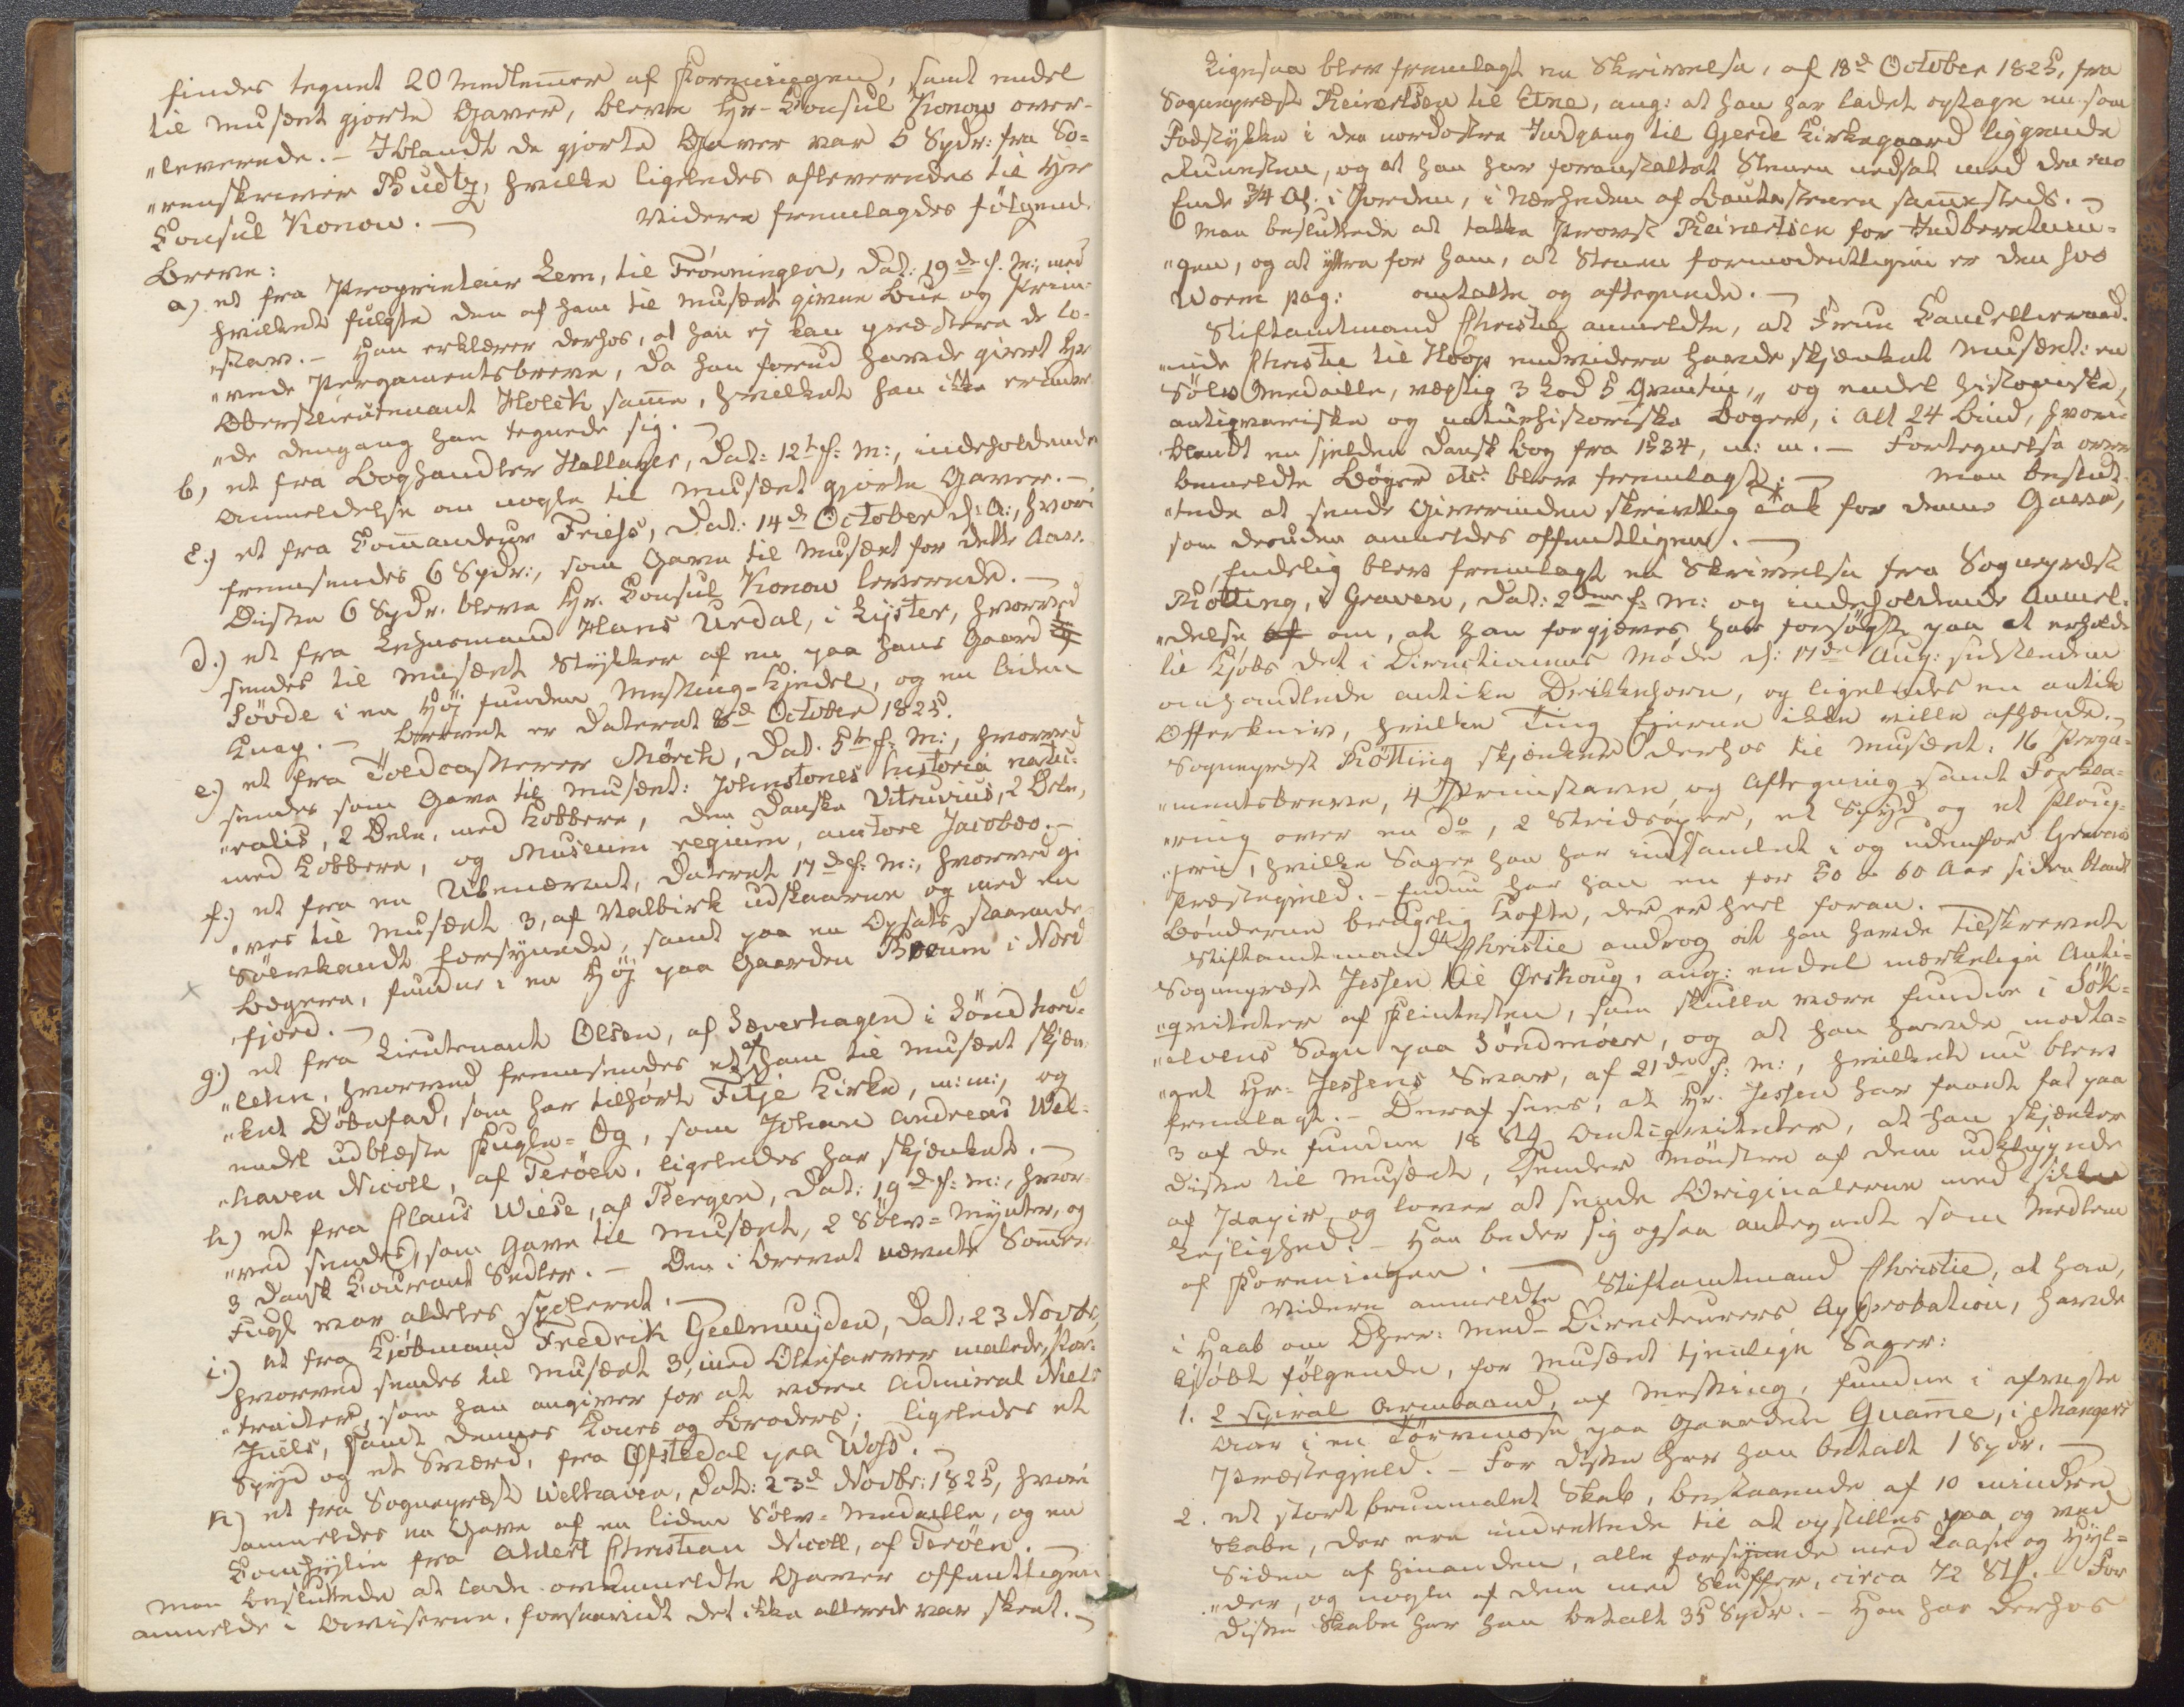 findes tegnet 20 Medlemmer af Foreningen, samt endel
til Musæet gjorte Gaver, bleve Hr. Consul Konow over-
„leverede. – Iblandt de gjorte Gaver var 5 Spdr: fra So-
„renskriver Budtz, hvilke ligeledes afleveredes til Herr
Consul Konow. – Videre fremlagdes følgende
Breve:
a) et fra Proprietair Lem, til Frönningen, dat: 19de f. M:, med
hvilket fulgte den af ham til Musæet givne Bue og Prim-
„stav. – Han erklærer derhos, at han ej kan præstere de lo-
„vede Pergamentsbreve, da han forud havde givet Hr
Oberstlieutenant Holck samme, hvilket han ikke erindre-
„de dengang han tegnede sig. –
b) et fra Boghandler Hallager, dat: 12te f: M:, indeholdende
Anmeldelse om nogle til Musæet gjorte Gaver. –
c.) et fra Commandeur Friess, dat: 14d October d: A:, hvori
fremsendes 6 Spdr:, som Gave til Musæet for dette Aar.
Disse 6 Spdr. bleve Hr. Consul Konow leverede. –
d.) et fra Lehnsmand Hans Urdal, i Lyster, hvorved
sendes til Musæet Stykker af en paa hans Gaard
Sövde i en Høj funden Messing-Kjedel, og en liden
Knap. – Brevet er dateret 8d October 1825.
e.) et fra Toldcasserer Mørch, dat. 5te f: M:, hvorved
sendes som Gave til Musæet: Johnstones historia natu-
„ralis, 2 Dele, med Kobbere, den danske Vitruvius, 2 Dele,
med Kobbere, og Museum regium, auctore Jacobæo. –
f.) et fra en Ubenævnt, dateret 17de f: M:, hvorved gi
„ves til Musæet 3, af Valbirk udskaarne og med en
Sölvkandt forsynede, samt paa en Opsats staaende
Bægere, fundne i en Høj paa Gaarden i Nord
fjord. –
g.) et fra Lieutenant Olsen, af Sæverhagen i Söndhord-
„lehn, hvorved fremsendes et af ham til Musæet skjæn-
„ket Döbefad, som har tilhört Fitje Kirke, m: m:, og
endel udblæste Fugle-Æg, som Johan Andreas Wel-
„haven Nicoll, af Teröen, ligeledes har skjænket. –
h) et fra Claus Wiese, af Bergen, dat: 19de f: m:, hvor-
„ved sendes, som Gave til Musæet, 2 Sölv-Mynter, og
3 dansk Courant Sedler. – Den i Brevet nævnte Sommer
Fugl var aldeles spoleret. –
i.) et fra Kjøbmand Fredrik Geelmuyden, dat: 23 Novbr,
hvorved sendes til Musæet 3, med Oliefarver malede, Por-
„traiter, som han angiver for at være Admiral Niels
Juels, samt dennes Kones og Broders; ligeledes et
Spyd og et Sværd, fra Öfstedal paa Woss. –
k) et fra Sognepræst Welhaven, dat: 23d Novbr: 1825, hvori
anmeldes en Gave af en liden Sölv-Medaille, og en
Conchylie fra Aldert Christian Nicoll, af Teröen. –
Man besluttede at lade ovenmeldte Gaver offentligen
anmelde i Aviserne, forsaavidt det ikke allerede var skeet. –
Ligesaa blev fremlagt en Skrivelse, af 18d October 1825, fra
Sognepræst Reinertsen til Etne, ang: at han har ladet optage en som
Fodstykke i den nordostre Indgang til Gjerde Kirkegaard liggende
Runesten, og at han har foranstaltet Stenen nedsat med den ene
Ende 3/4 Al. i Jorden, i Nærheden af Bautastenen sammesteds. –
Man besluttede at takke Provst Reinertsen for Indberetnin-
„gen, og at yttre for ham, at Stenen formodentligen er den hos
Worm pag: omtalte og aftegnede. –
Stiftamtmand Christie anmeldte, at Frue Cancelliraad-
„inde Christie til Hoop endvidere havde skjænket Musæet: en
Sölv Medaille, vægtig 3 Lod 5 Qvintin, og endel historiske,
antiqvariske og naturhistoriske Böger, i Alt 24 Bind, hvori-
blandt en sjelden dansk Bog fra 1534, m: m. – Fortegnelse over
bemeldte Bøger etc: blev fremlagt. – Man beslut-
„tede at sende Giverinden skriftlig Tak for denne Gave,
som desuden anmeldes offentligen. –
Endelig blev fremlagt en Skrivelse fra Sognepræst
Rötting, i Graven, dat: 2den f: M: og indeholdende Anmel-
„delse om, at han forgjæves har forsögt paa at erholde
til Kjöbs det i Directionens Møde d: 17de Aug: sidstleden
omhandlede antike Drikkehorn, og ligeledes en antik
Offerkniv, hvilke Ting Ejerne ikke ville afhænde. –
Sognepræst Rötting skjænker derhos til Musæet: 16 Perga-
„mentsbreve, 4 Primstave, og Aftegning samt Forkla-
„ring over en do, 2 Stridsöxer, et Spyd og et Ploug-
„jern, hvilke Sager han har indsamlet i og udenfor Gravens
Præstegjeld. – Endnu har han en for 50 a 60 Aar siden blandt
Bönderne brugelig Kofte, der er heel foran. –
Stiftamtmand Christie androg at han havde tilskrevet
Sognepræst Jessen til Ørskoug, ang: endel mærkelige Anti-
„qviteter af Flintesten, som skulle være fundne i Sök-
„elvens Sogn paa Söndmöer, og at han havde modta-
„get Hr. Jessens Svar, af 21de f: M:, hvilket nu blev
fremlagt. – Deraf sees, at Hr. Jessen har faaet fat paa
3 af de fundne 18 St: Antiqviteter, at han skjænker
disse til Musæet, sender Mönstre af dem udklippede
af Papir, og lover at sende Originalerne med sikker
Lejlighed. – Han beder sig ogsaa antegnet som Medlem
af Foreningen. –
Videre anmeldte Stiftamtmand Christie, at han,
i Haab om Dhrr: Med-Directeurers Approbation, havde
kjöbt fölgende, for Musæet tjenlige Sager:
1. 2 Spiral Armbaand, af Messing, fundne i afvigte
Aar i en Törvmose paa Gaarden Quamme, i Mangers
Præstegjeld. – For disse har han betalt 1 Spdr. –
2. et stort brunmalet Skab, bestaaende af 10 mindre
Skabe, der ere indrettede til at opstilles paa og ved
Siden af hinanden, alle forsynede med Laase og Hyl-
„der, og nogle af dem med Skuffer, circa 72 St. – For
disse Skabe har han betalt 35 Spdr. – Han har derhos